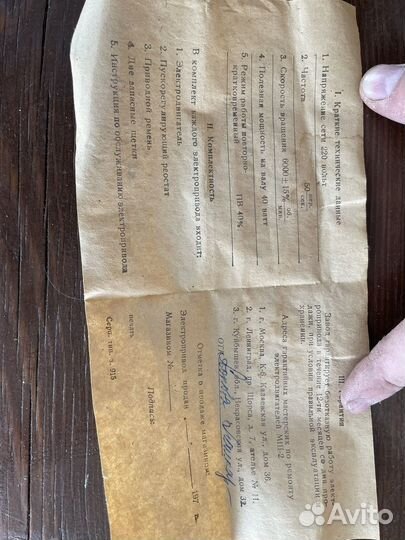 I. Краткие технические данные
1. Напряжение сети 220 вольт
2. Частота 50 пер. сек.
3. Скорость вращения 6000 ± 15% об. мин.
4. Полезная мощность на валу 40 ватт
5. Режим работы повторно-
кратковременный ПВ 40%
II. Комплектность
В комплект каждого электропривода входит:
1. Электродвигатель
2. Пускорегулирующий реостат
3. Приводной ремень
4. Две запасные щетки
5. Инструкция по обслуживанию электропривода
III. Гарантия
Завод гарантирует безотказную работу элект-
ропривода в течение 12-ти месяцев со дня про-
дажи, при условии правильной эксплуатации
хранения.
Адреса гарантийных мастерских по ремонту
электродвигателей МШ-2
1. г. Москва, К-6, Каляевская ул., дом 36.
2. г. Ленинград, пр. Щорса, д. 7, ателье № 11.
3. г. Куйбышев, обл. ул., дом 32.
Отметка о продаже магазином:
Электропривод продан « » 197 г.
Магазином №
Подпись
печать
Серп. тип. з. 915
Avito